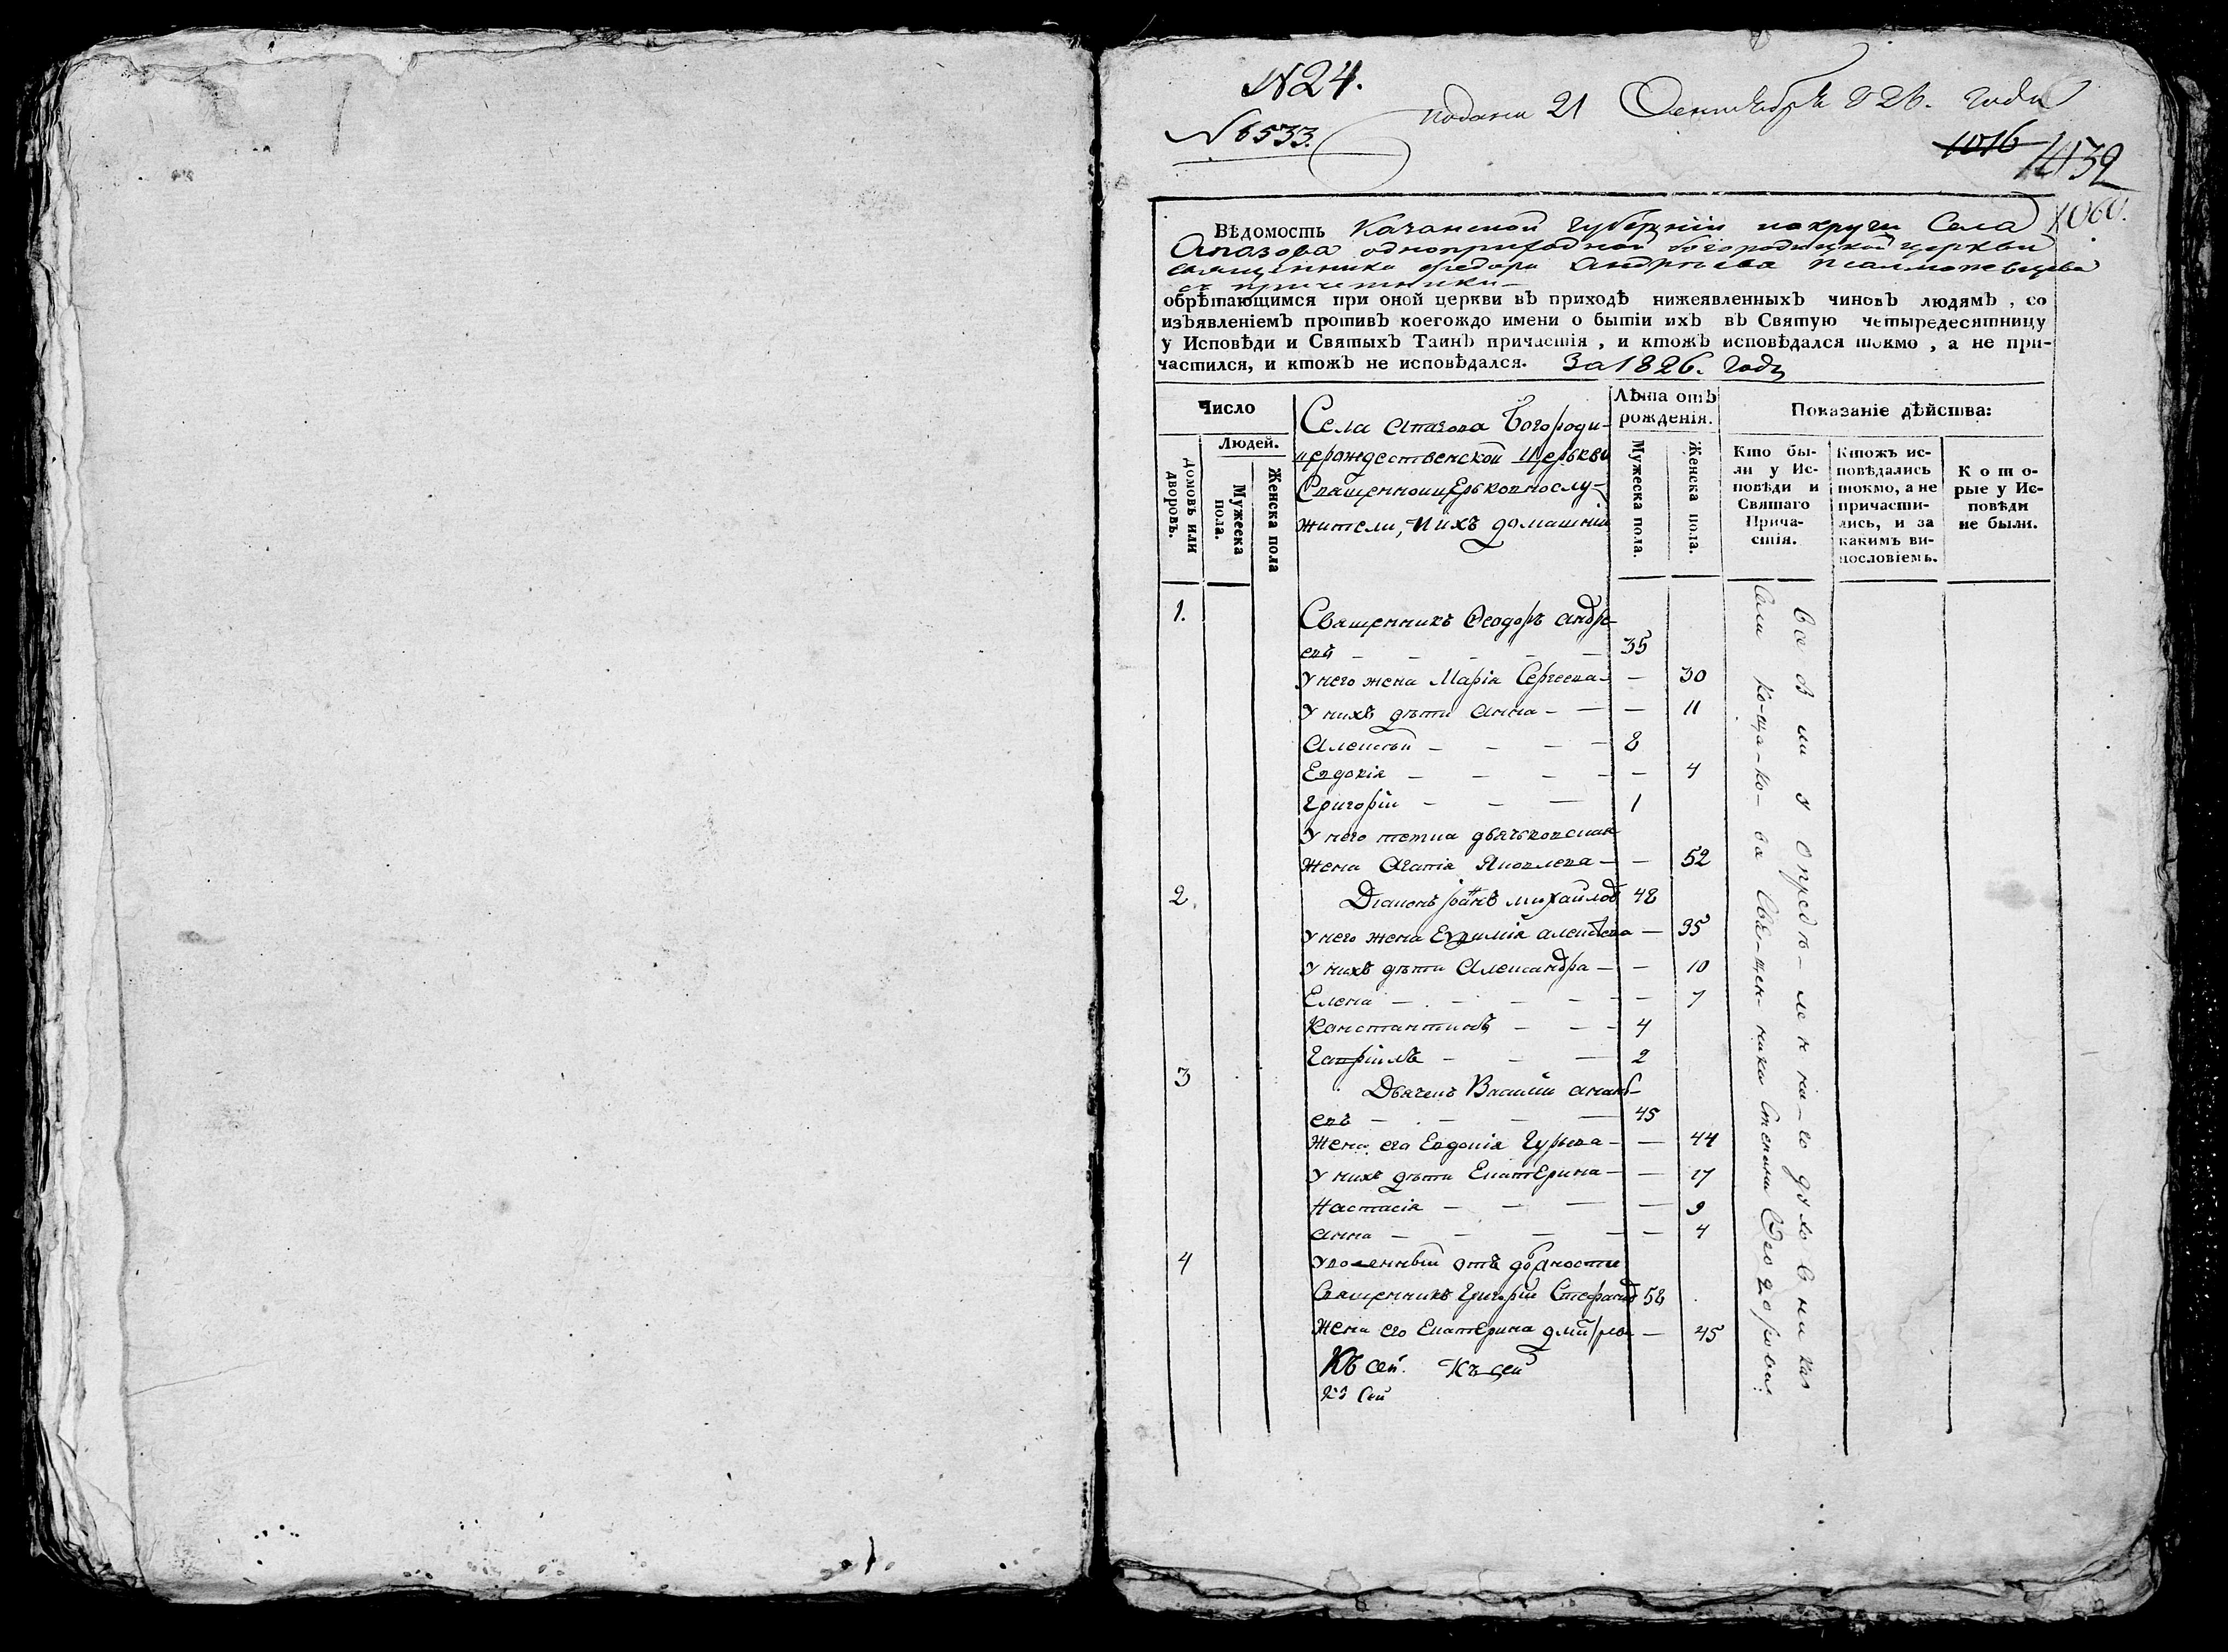 N 24.
подана 21 Сентебря 826. года
N 6533.
1016
1060.
Вѣдомость Казанской губернии округи Села
Апазова одноприходной богородицкой церкви
священника федора Андреева
с причетники
обрѣтающимся при оной церкви въ приходѣ нижеявленныхъ чиновъ людямъ, со
изъявленіемъ противъ коегождо имени о бытіи ихъ въ Святую четыредесятницу
у Исповѣди и Святыхъ Таинъ причастія, и ктожъ исповѣдался токмо, а не при-
частился, и ктожъ не исповѣдался. За 1826. годъ
Число
Людей.
Домовъ или дворовъ.
Мужеска пола.
Женска пола
Села Апазова Богороди-
церождественской Церькви
Священноицерьковнослу-
жители, и ихъ домашнии
Лѣта отъ
рожденія.
Мужеска пола.
Женска пола.
Показаніе дѣйства:
Кто бы-
ли у Ис-
повѣди и
Святаго
Прича-
стія.
Ктожъ ис-
повѣдались
токмо, а не
причасти-
лись, и за
какимъ ви-
нословіемъ.
Кото-
рые у Ис-
повѣди
не были.
1. Священникъ Феодоръ Андре-
евъ — — — — 35
У него жена Марія Сергеева — — 30
У нихъ дѣти Анна — — — 11
Алексѣй — — — — 8
Евдокія — — — — — 4
Григорій — — — 1
У него тетка дьячьковская
жена Агапія Яковлева — — 52
2. Діаконъ Іоаннъ Михайловъ 48
У него жена Ефимія Алексѣева — 35
У нихъ дѣти Александра — — 10
Елена — — — — — — 7
Константинъ — — — 4
Гавріилъ — — — 2
3 Дьячекъ Василий Анань-
евъ — — — — 45
Жена его Евдокія Гурьева — — 44
У нихъ дѣти Екатерина — — 17
Настасія — — — — 9
Анна — — — — — 4
4 Уволенный отъ должности
Священникъ Григорій Стефановъ 58
Жена его Екатерина — 45
Къ сей. Къ сей
Къ Сей